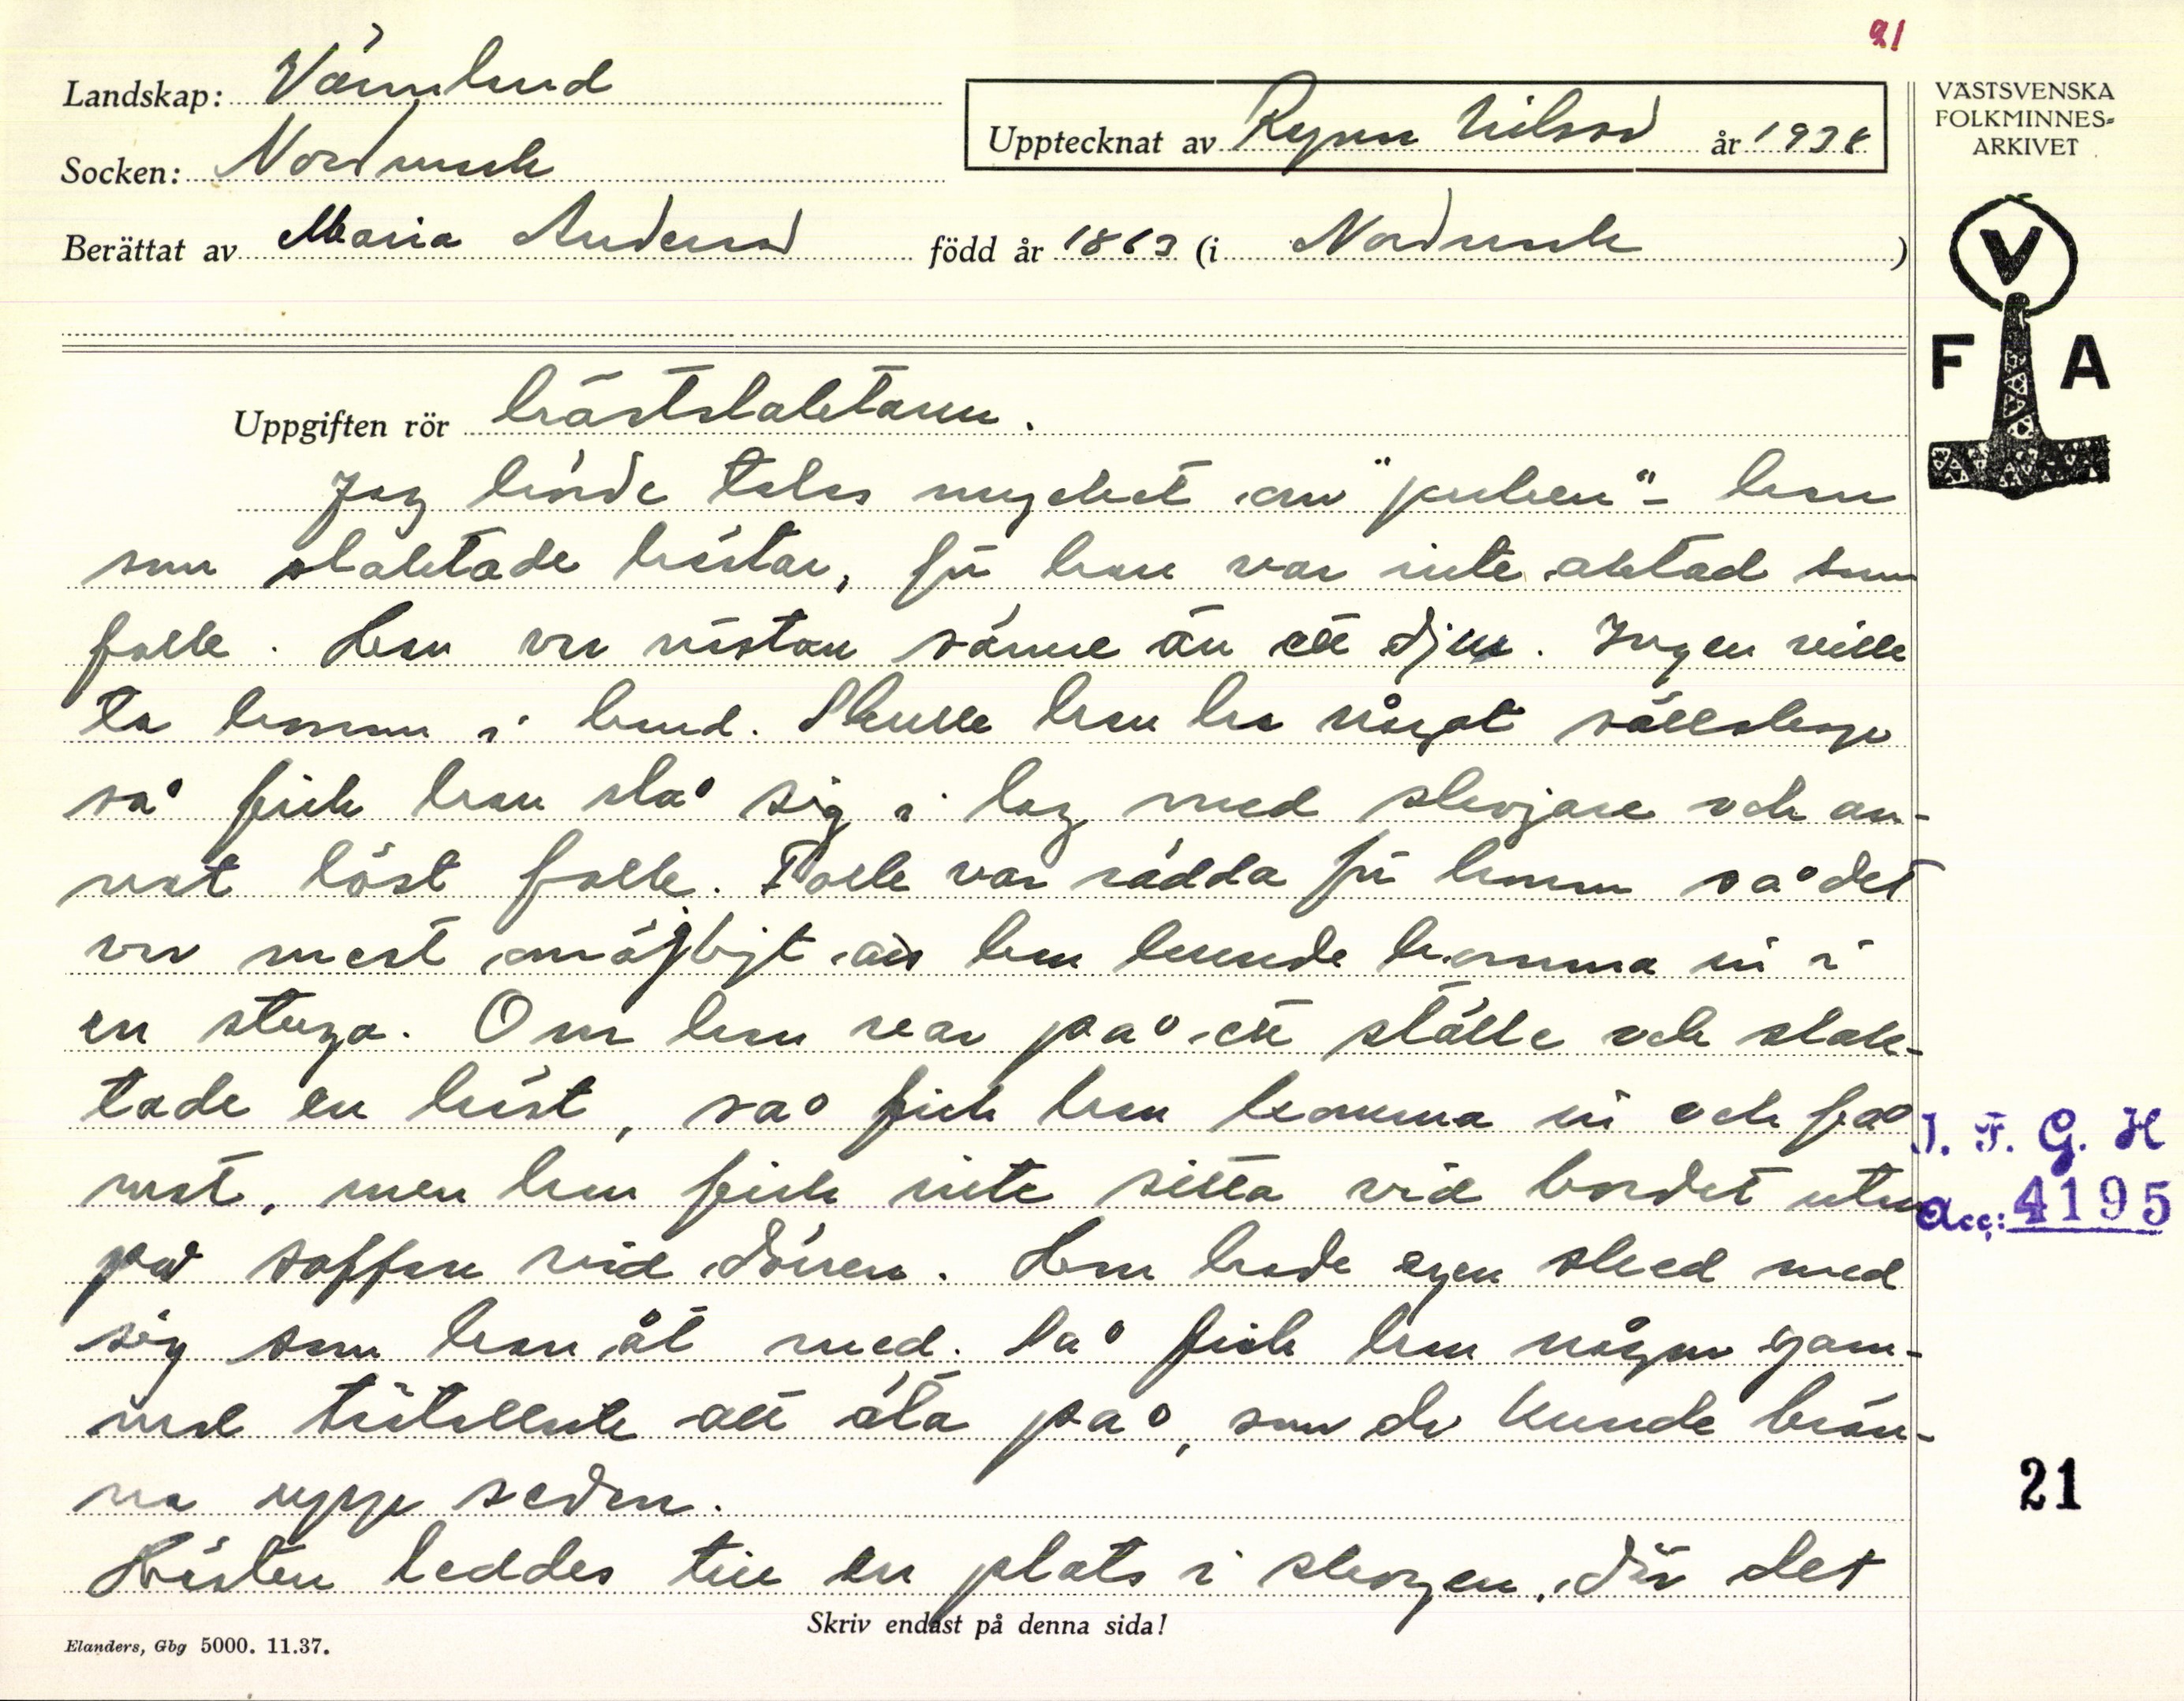 21
Landskap: Värmland
Socken: Nordmark
Upptecknat av Ragnar Nilsson år 1938
Berättat av Maria Andersson född år 1863 (i Nordmark)
VÄSTSVENSKA
FOLKMINNES-
ARKIVET
V
F A
Uppgiften rör hästslaktaren.
Jag hörde talas mycket om "puken" - han
som slaktade hästar, för han var inte aktad som
folk. Han var nästan sämre än ett djur. Ingen ville
ta honom i hand. Skulle han ha något sällskap
så fick han slå sig i lag med skojare och an-
nat löst folk. Folk var rädda för honom så det
var mest omöjligt att han kunde komma in i
en stuga. Om han var på ett ställe och slak-
tade en häst, så fick han komma in och få
mat, men han fick inte sitta vid bordet utan
på soffan vid dörren. Han hade egen sked med
sig som han åt med. Så fick han någon gam-
mal trätallrik att äta på, som de kunde brän-
na upp sedan.
Hästen leddes till en plats i skogen, där det
I. F. G. H
Acc: 4195
21
Skriv endast på denna sida!
Elanders, Gbg 5000. 11.37.